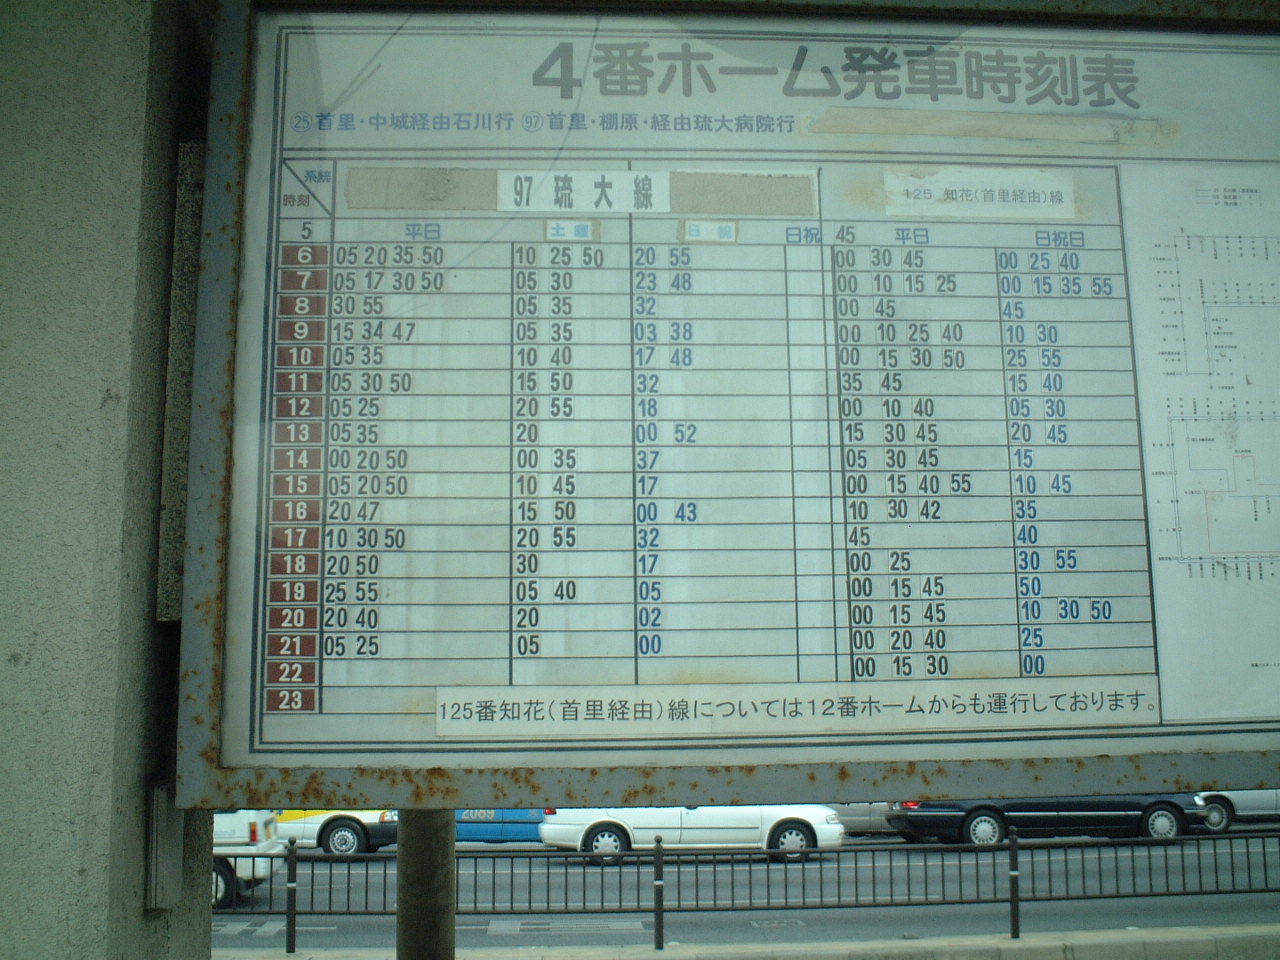 4番ホーム発車時刻表
㉕首里・中城経由石川行 97首里・棚原・経由琉大病院行
系統 97 琉大線 125 知花(首里経由)線
時刻
5 平日 土曜 日祝 日祝 45 平日 日祝日
6 05 20 35 50 10 25 50 20 55 00 30 45 00 25 40
7 05 17 30 50 05 30 23 48 00 10 15 25 00 15 35 55
8 30 55 05 35 32 00 45 45
9 15 34 47 05 35 03 38 00 10 25 40 10 30
10 05 35 10 40 17 48 00 15 30 50 25 55
11 05 30 50 15 50 32 35 45 15 40
12 05 25 20 55 18 00 10 40 05 30
13 05 35 20 00 52 15 30 45 20 45
14 00 20 50 00 35 37 05 30 45 15
15 05 20 50 10 45 17 00 15 40 55 10 45
16 20 47 15 50 00 43 10 30 42 35
17 10 30 50 20 55 32 45 40
18 20 50 30 17 00 25 30 55
19 25 55 05 40 05 00 15 45 50
20 20 40 20 02 00 15 45 10 30 50
21 05 25 05 00 00 20 40 25
22 00 15 30 00
23
125番知花(首里経由)線については12番ホームからも運行しております。
2089